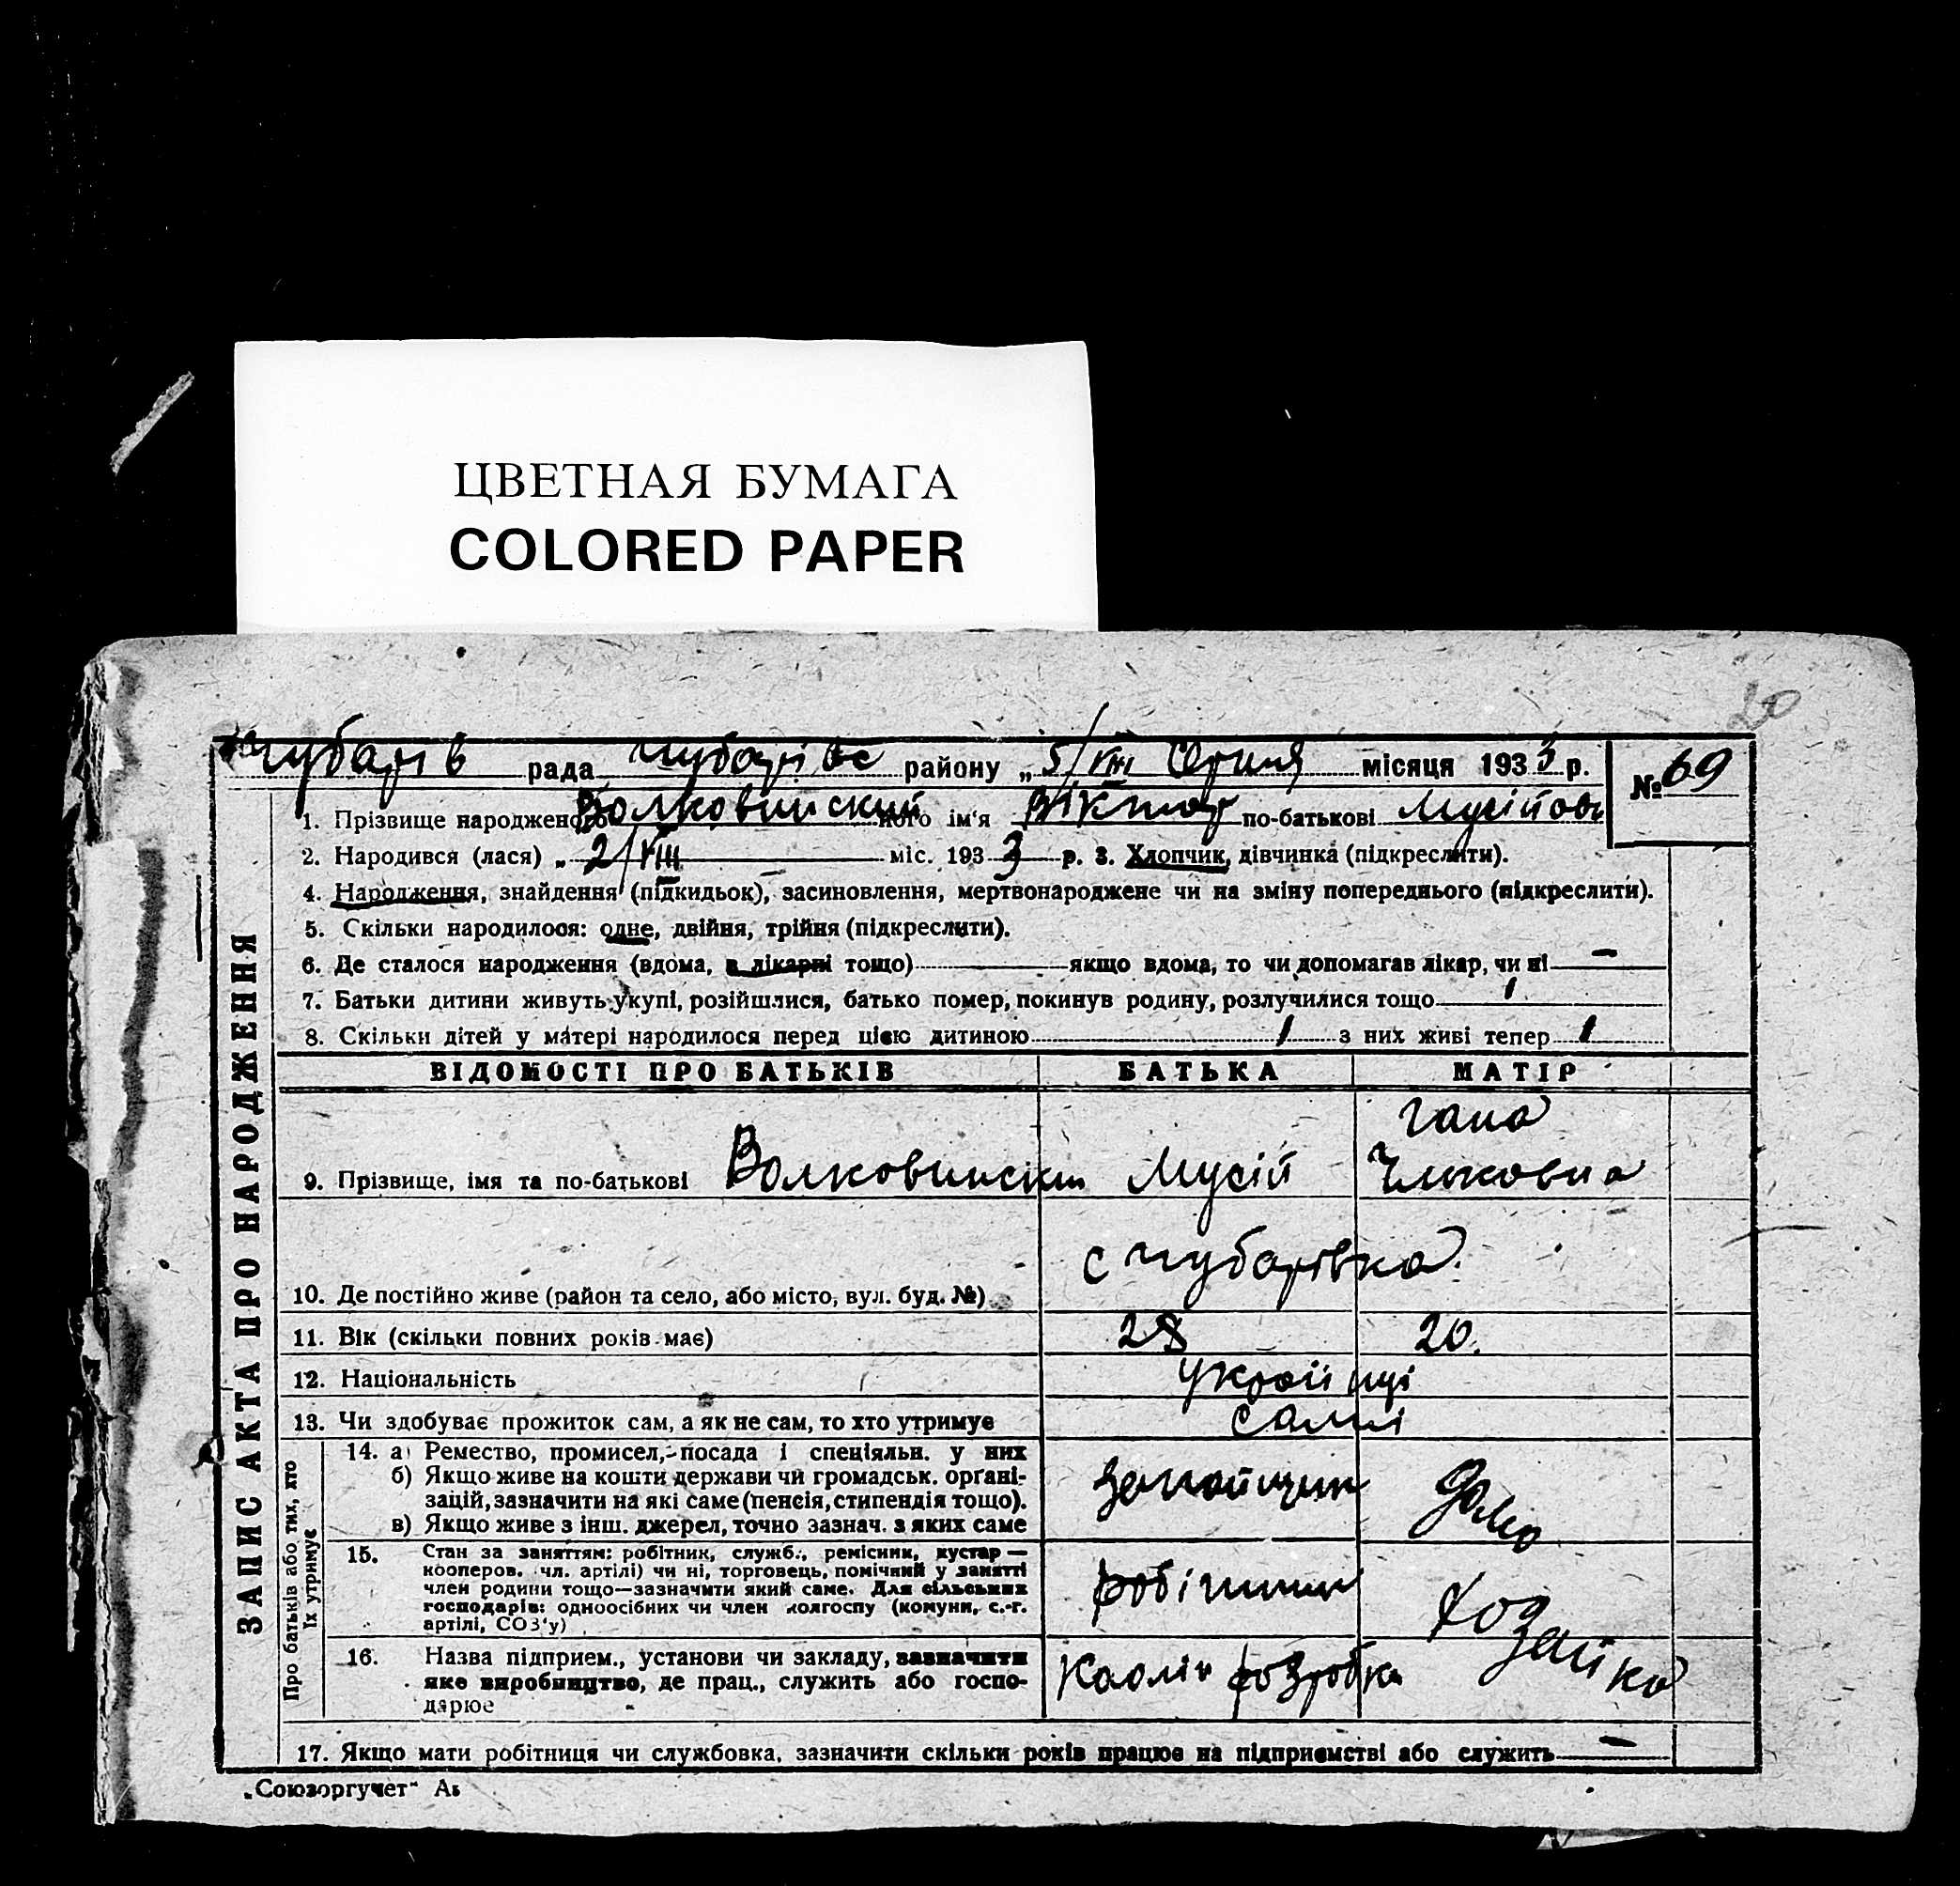 ЦВЕТНАЯ БУМАГА
COLORED PAPER
20
Чубарів рада Чубарівс району „5/VIII Серпня місяця 1933 р. № 69
1. Прізвище народженого Волковинский його ім'я Віктор по-батькові Мусійов
2. Народився (лася) „2/VIII міс. 1933 р. 3. Хлопчик, дівчинка (підкреслити).
4. Народження, знайдення (підкидьок), засиновлення, мертвонароджене чи на зміну попереднього (підкреслити).
5. Скільки народилося: одне, двійня, трійня (підкреслити).
6. Де сталося народження (вдома, в лікарні тощо) — якщо вдома, то чи допомагав лікар, чи ні —
7. Батьки дитини живуть укупі, розійшлися, батько помер, покинув родину, розлучилися тощо
8. Скільки дітей у матері народилося перед цією дитиною 1 з них живі тепер 1
ЗАПИС АКТА ПРО НАРОДЖЕННЯ
ВІДОМОСТІ ПРО БАТЬКІВ БАТЬКА МАТІР
9. Прізвище, імя та по-батькові Волковински Мусій Гана
10. Де постійно живе (район та село, або місто, вул. буд. №) с Чубарівка
11. Вік (скільки повних років має) 28 20.
12. Національність Українці
13. Чи здобуває прожиток сам, а як не сам, то хто утримує самі
Про батьків або тих, хто
їх утримує
14. а) Ремество, промисел, посада і спеціяльн. у них
б) Якщо живе на кошти держави чи громадськ. органі-
зацій, зазначити на які саме (пенсія, стипендія тощо).
в) Якщо живе з інш. джерел, точно зазнач. з яких саме
Домо
15. Стан за заняттям: робітник, служб., ремісник, кустар —
кооперов. чл. артілі) чи ні, торговець, помічний у занятті
член родини тощо—зазначити який саме. Для сільських
господарів: одноосібних чи член колгоспу (комуни, с.-г.
артілі, СОЗ'у)
робітник
хозайка
16. Назва підприєм., установи чи закладу, зазначити
яке виробництво, де прац., служить або госпо-
дарює
Каолін розробка
17. Якщо мати робітниця чи службовка, зазначити скільки років працює на підприємстві або служить —
„Союзоргучет"